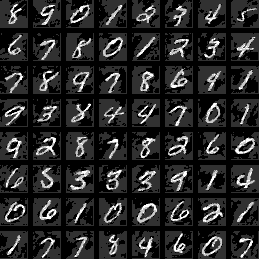 8 9 0 1 2 3 4 5
6 7 8 0 1 2 3 4
7 8 9 7 8 6 4 1
9 3 8 4 4 7 0 1
9 2 8 7 8 2 6 0
6 5 3 3 3 9 1 4
0 6 1 0 0 6 2 1
1 7 7 8 4 6 0 7